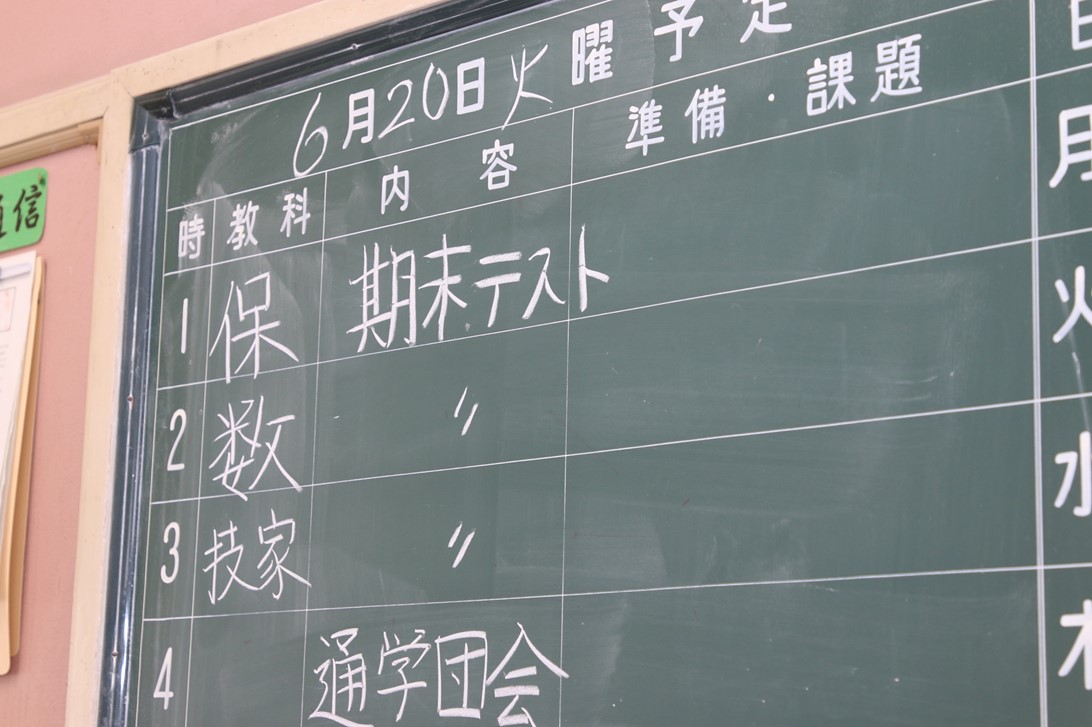 6月20日火曜予定
時 教科 内容 準備・課題
1 保 期末テスト
2 数 〃
3 技家 〃
4 通学団会
通信
日
月
火
水
木